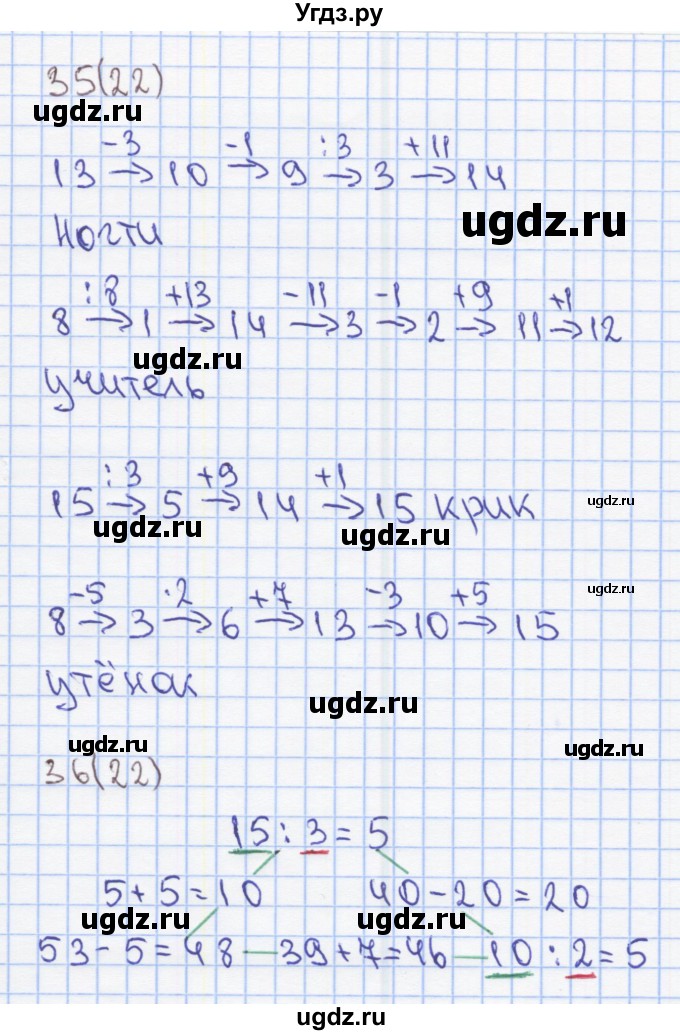 Угдз.ру
35(22)
ugdz.ru
-3 -1 :3 +11
13 → 10 → 9 → 3 → 14
ugdz.ru
Ногти
:8 +13 -11 -1 +9 +1
8 → 1 → 14 → 3 → 2 → 11 → 12
ugdz.ru
учитель
:3 +9 +1
15 → 5 → 14 → 15 крик
ugdz.ru
ugdz.ru
ugdz.ru
ugdz.ru
-5 ·2 +7 -3 +5
8 → 3 → 6 → 13 → 10 → 15
утёнак
ugdz.ru
ugdz.ru
ugdz.ru
36(22)
15 : 3 = 5
5 + 5 = 10 40 - 20 = 20
ugdz.ru ugdz.ru
53 - 5 = 48 — 39 + 7 = 46 — 10 : 2 = 5
ugdz.ru